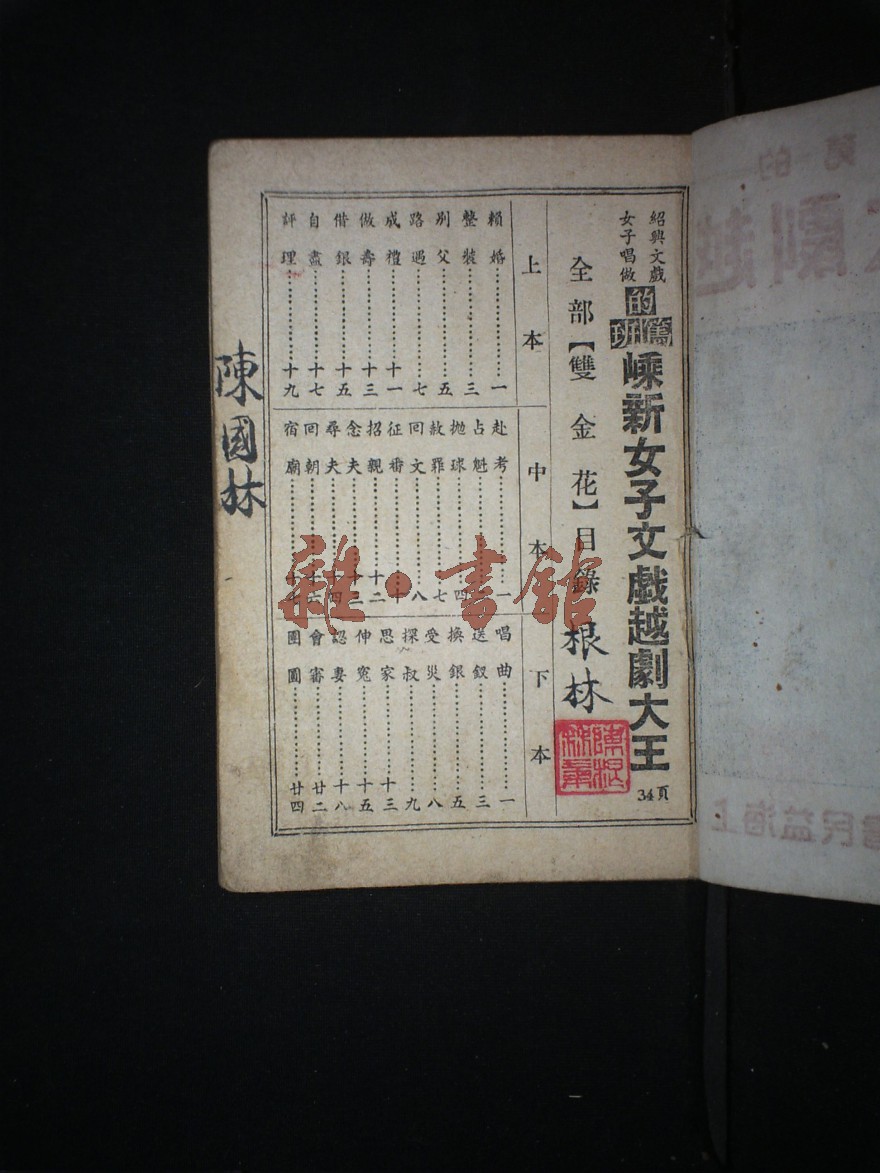 紹興文戲
女子唱做
的篤班
嵊新女子文戲越劇大王
34頁
全部【雙金花】目錄
根林
上本
賴婚 一
整裝 三
別父 五
路過 七
成禮 十一
做壽 十三
借銀 十五
自盡 十七
評理 十九
中本
赴考 一
占魁
拋球 四
赦罪 七
回文 八
征番 十
招親 十二
念夫 十三
尋夫 十四
回朝 十六
宿廟
下本
唱曲 一
送釵 三
換銀 五
受災 八
探叔 九
思家 十三
伸冤 十五
認妻 十八
會審 廿二
團圓 廿四
陳國林
雜·書館
的 篤
越劇
上海益民書